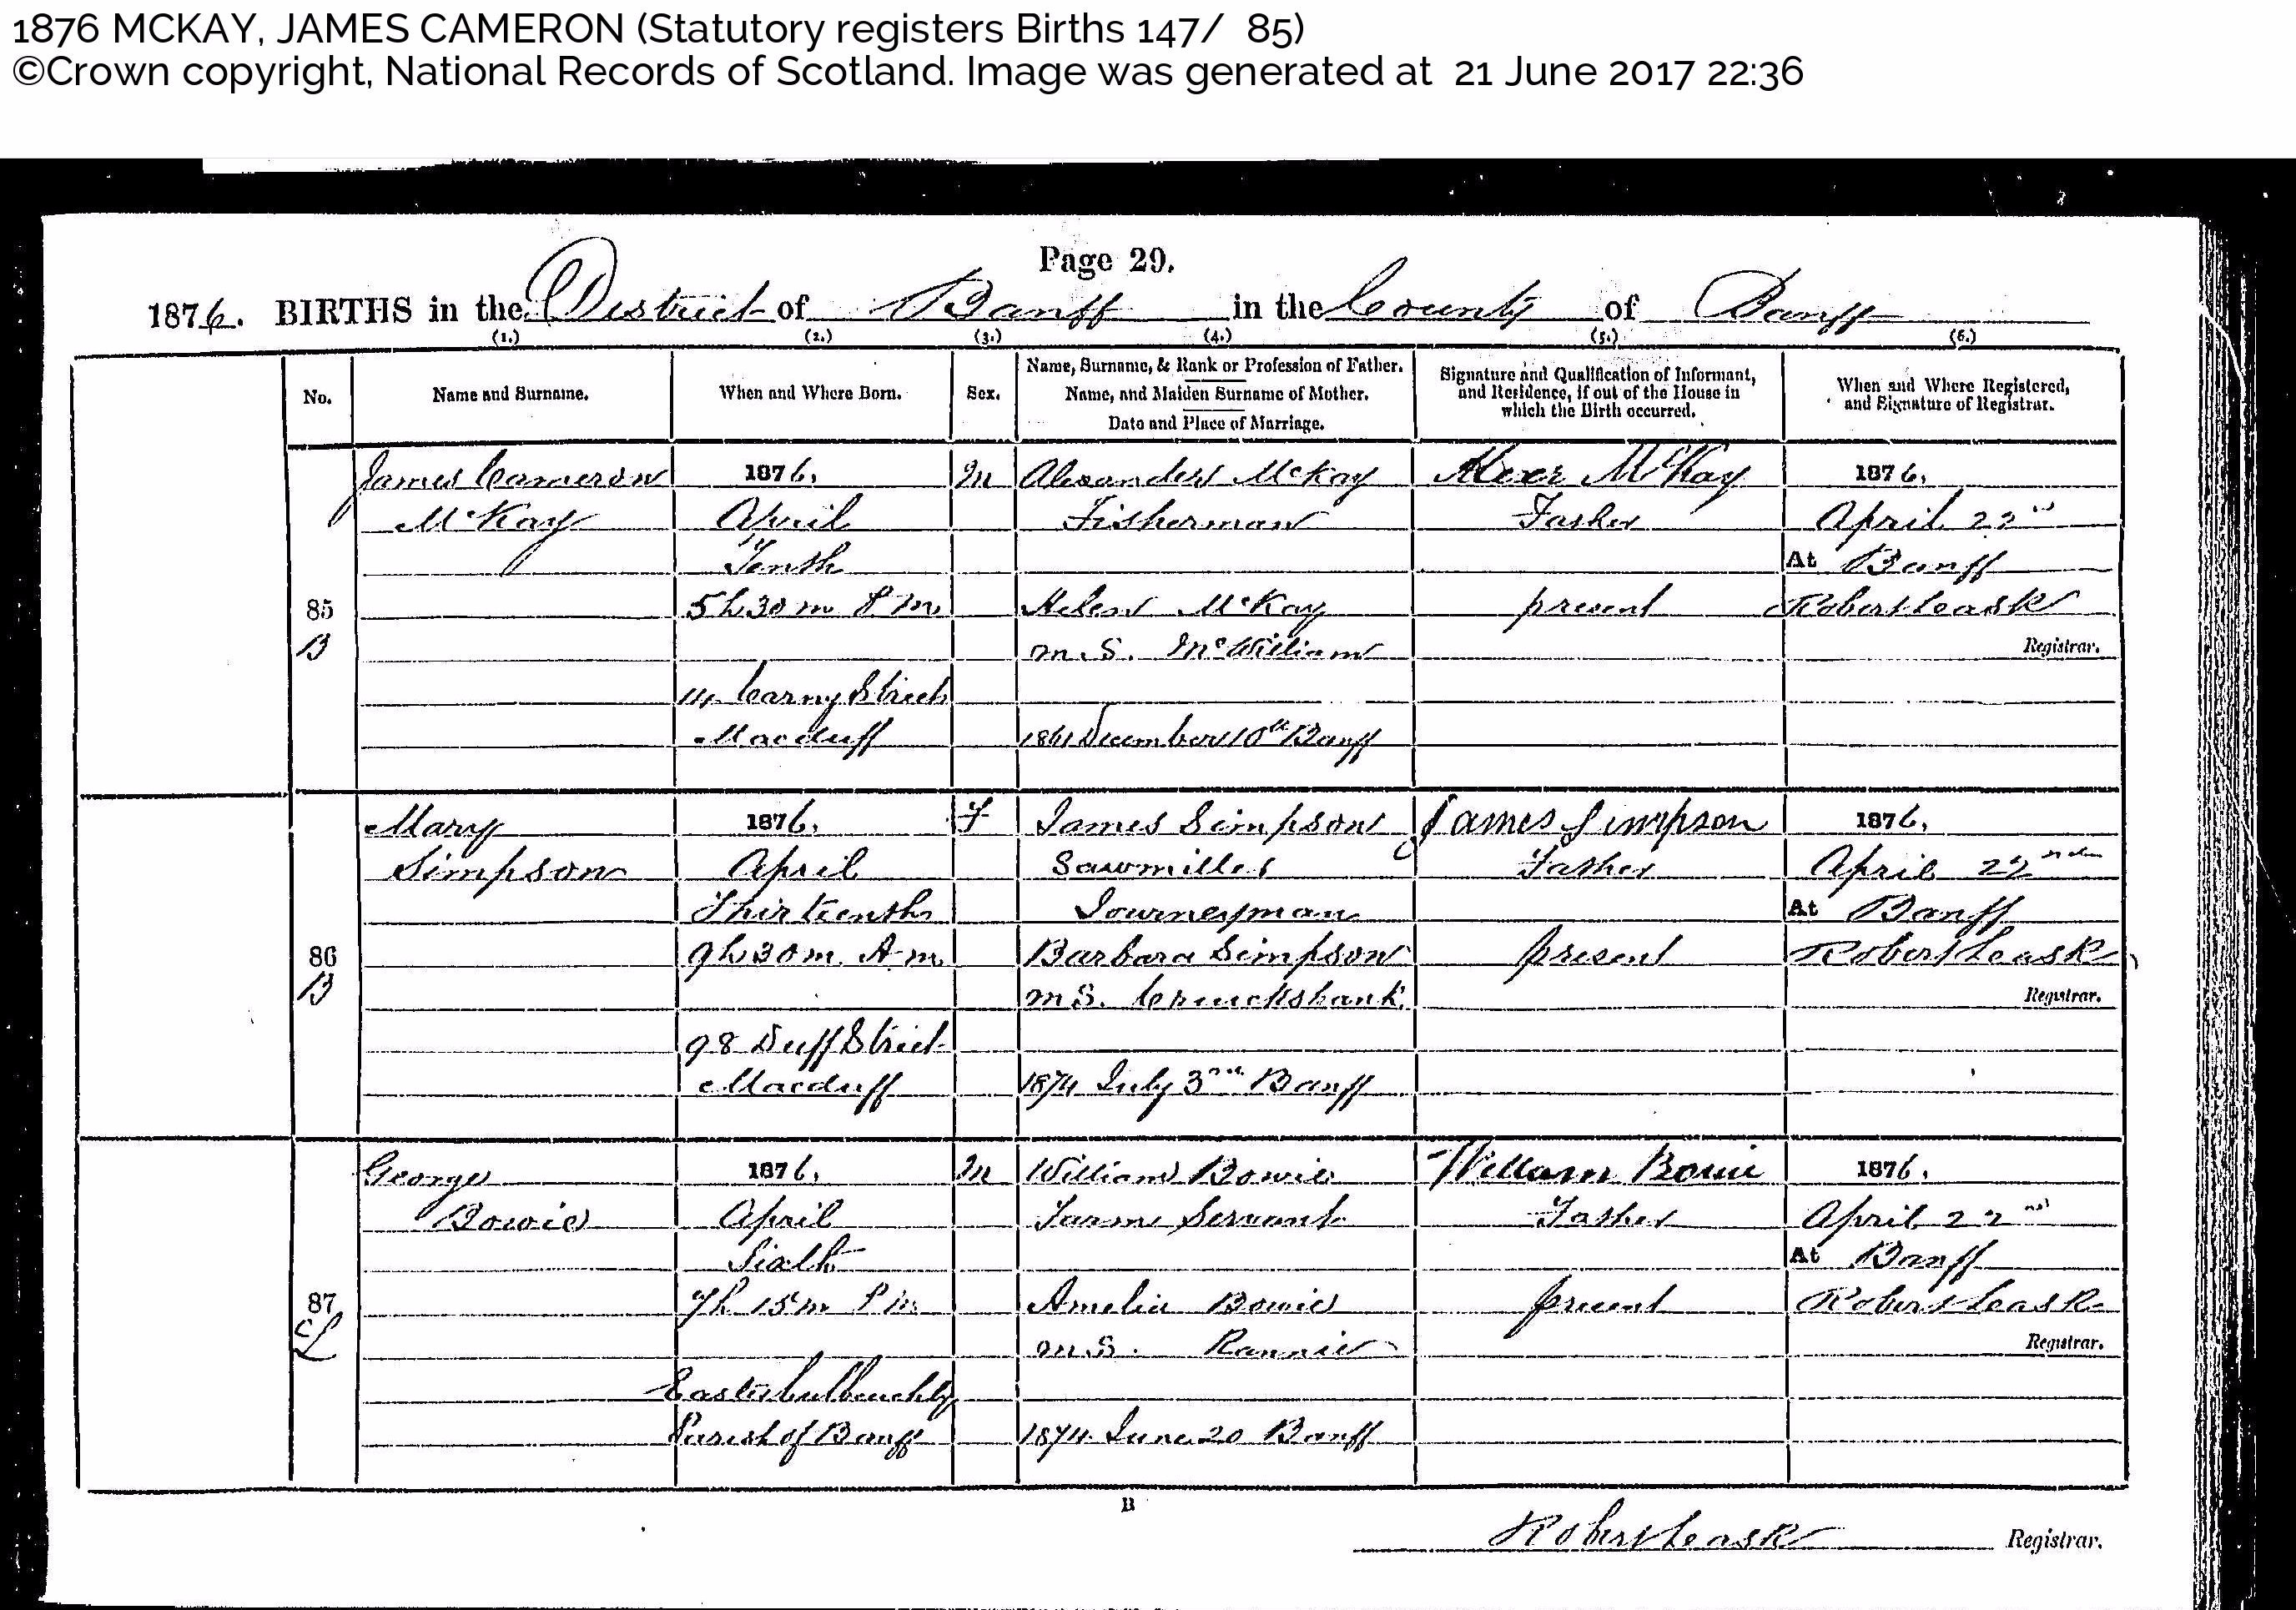 1876 MCKAY, JAMES CAMERON (Statutory registers Births 147/ 85)
©Crown copyright, National Records of Scotland. Image was generated at 21 June 2017 22:36
Page 29.
1876. BIRTHS in the District of Banff in the County of Banff
(1.) (2.) (3.) (4.) (5.) (6.)
No.
Name and Surname.
When and Where Born.
Sex.
Name, Surname, & Rank or Profession of Father.
Name, and Maiden Surname of Mother.
Date and Place of Marriage.
Signature and Qualification of Informant,
and Residence, if out of the House in
which the Birth occurred.
When and Where Registered,
and Signature of Registrar.
85
B
James Cameron
McKay
1876,
April
Tenth
5h 30m P.M.
14 Carny Street
Macduff
M
Alexander McKay
Fisherman
Helen McKay
m.S. McWilliam
1861 December 10th Banff
Alexr McKay
Father
present
1876,
April 22nd
At Banff
Robert Leask
Registrar.
86
B
Mary
Simpson
1876,
April
Thirteenth
9h 30m A.m.
98 Duff Street
Macduff
F
James Simpson
Sawmiller
Journeyman
Barbara Simpson
m.S. Cruickshank.
1874 July 3rd Banff
James Simpson
Father
present
1876,
April 22nd
At Banff
Robert Leask
Registrar.
87
George
Bowie
1876,
April
Sixth
7h 15m P.m.
Easter
Parish of Banff
M
William Bowie
Farm Servant
Amelia Bowie
m.S. Rannie
1874 June 20 Banff
William Bowie
Father
present
1876,
April 22nd
At Banff
Robert Leask
Registrar.
B
Robert Leask Registrar.